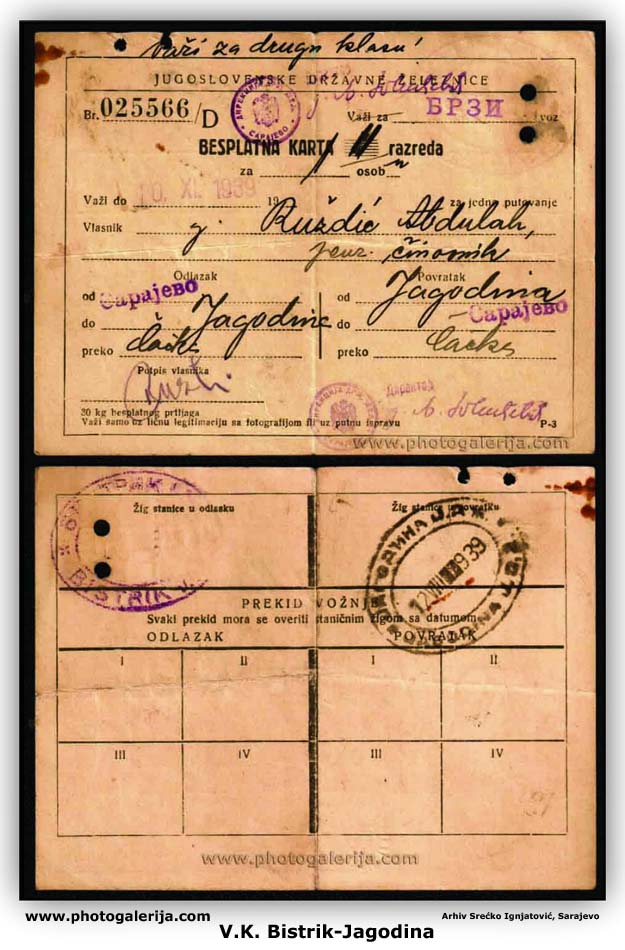 Važi za drugu klasu!
JUGOSLOVENSKE DRŽAVNE ŽELEZNICE
Br. 025566/D
САРАЈЕВО
Važi za БРЗИ voz
BESPLATNA KARTA II razreda
za osob
Važi do 10. XI. 1939 19 za jedno putovanje
Vlasnik g. Ruždić Abdulah,
penz. činovnik
Odlazak Povratak
od Сарајево od Jagodina
do Jagodine do Сарајево
preko Čačka preko Čačka
Potpis vlasnika
Директор
30 kg besplatnog prtljaga
Važi samo uz ličnu legitimaciju sa fotografijom ili uz putnu ispravu P-3
www.photogalerija.com
Žig stanice u odlasku Žig stanice u povratku
BISTRIK J.
ЈАГОДИНА Ј.Д.Ж.
12 VIII 1939
JAGODINA J.D.Ž.
PREKID VOŽNJE
Svaki prekid mora se overiti staničnim žigom sa datumom
ODLAZAK POVRATAK
I II I II
III IV III IV
www.photogalerija.com
www.photogalerija.com Arhiv Srećko Ignjatović, Sarajevo
V.K. Bistrik-Jagodina